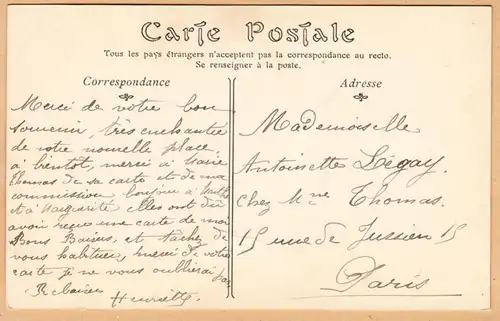 Carte Postale
Tous les pays étrangers n'acceptent pas la correspondance au recto.
Se renseigner à la poste.
Correspondance
Merci de votre bon
souvenir, très enchantée
de votre nouvelle place,
a bientot, merci à Marie
Thomas de sa carte et de ma
commission bonjour à
et à Marguerite elles ont du
avoir reçue une carte de moi
Bons Baisers, et tachez de
vous habituer, merci de votre
carte je ne vous oublierai pas
Rebaisers
Henriette
Adresse
Mademoiselle
Antoinette Légay.
chez Mme Thomas.
15 rue de Jussieu 15
Paris